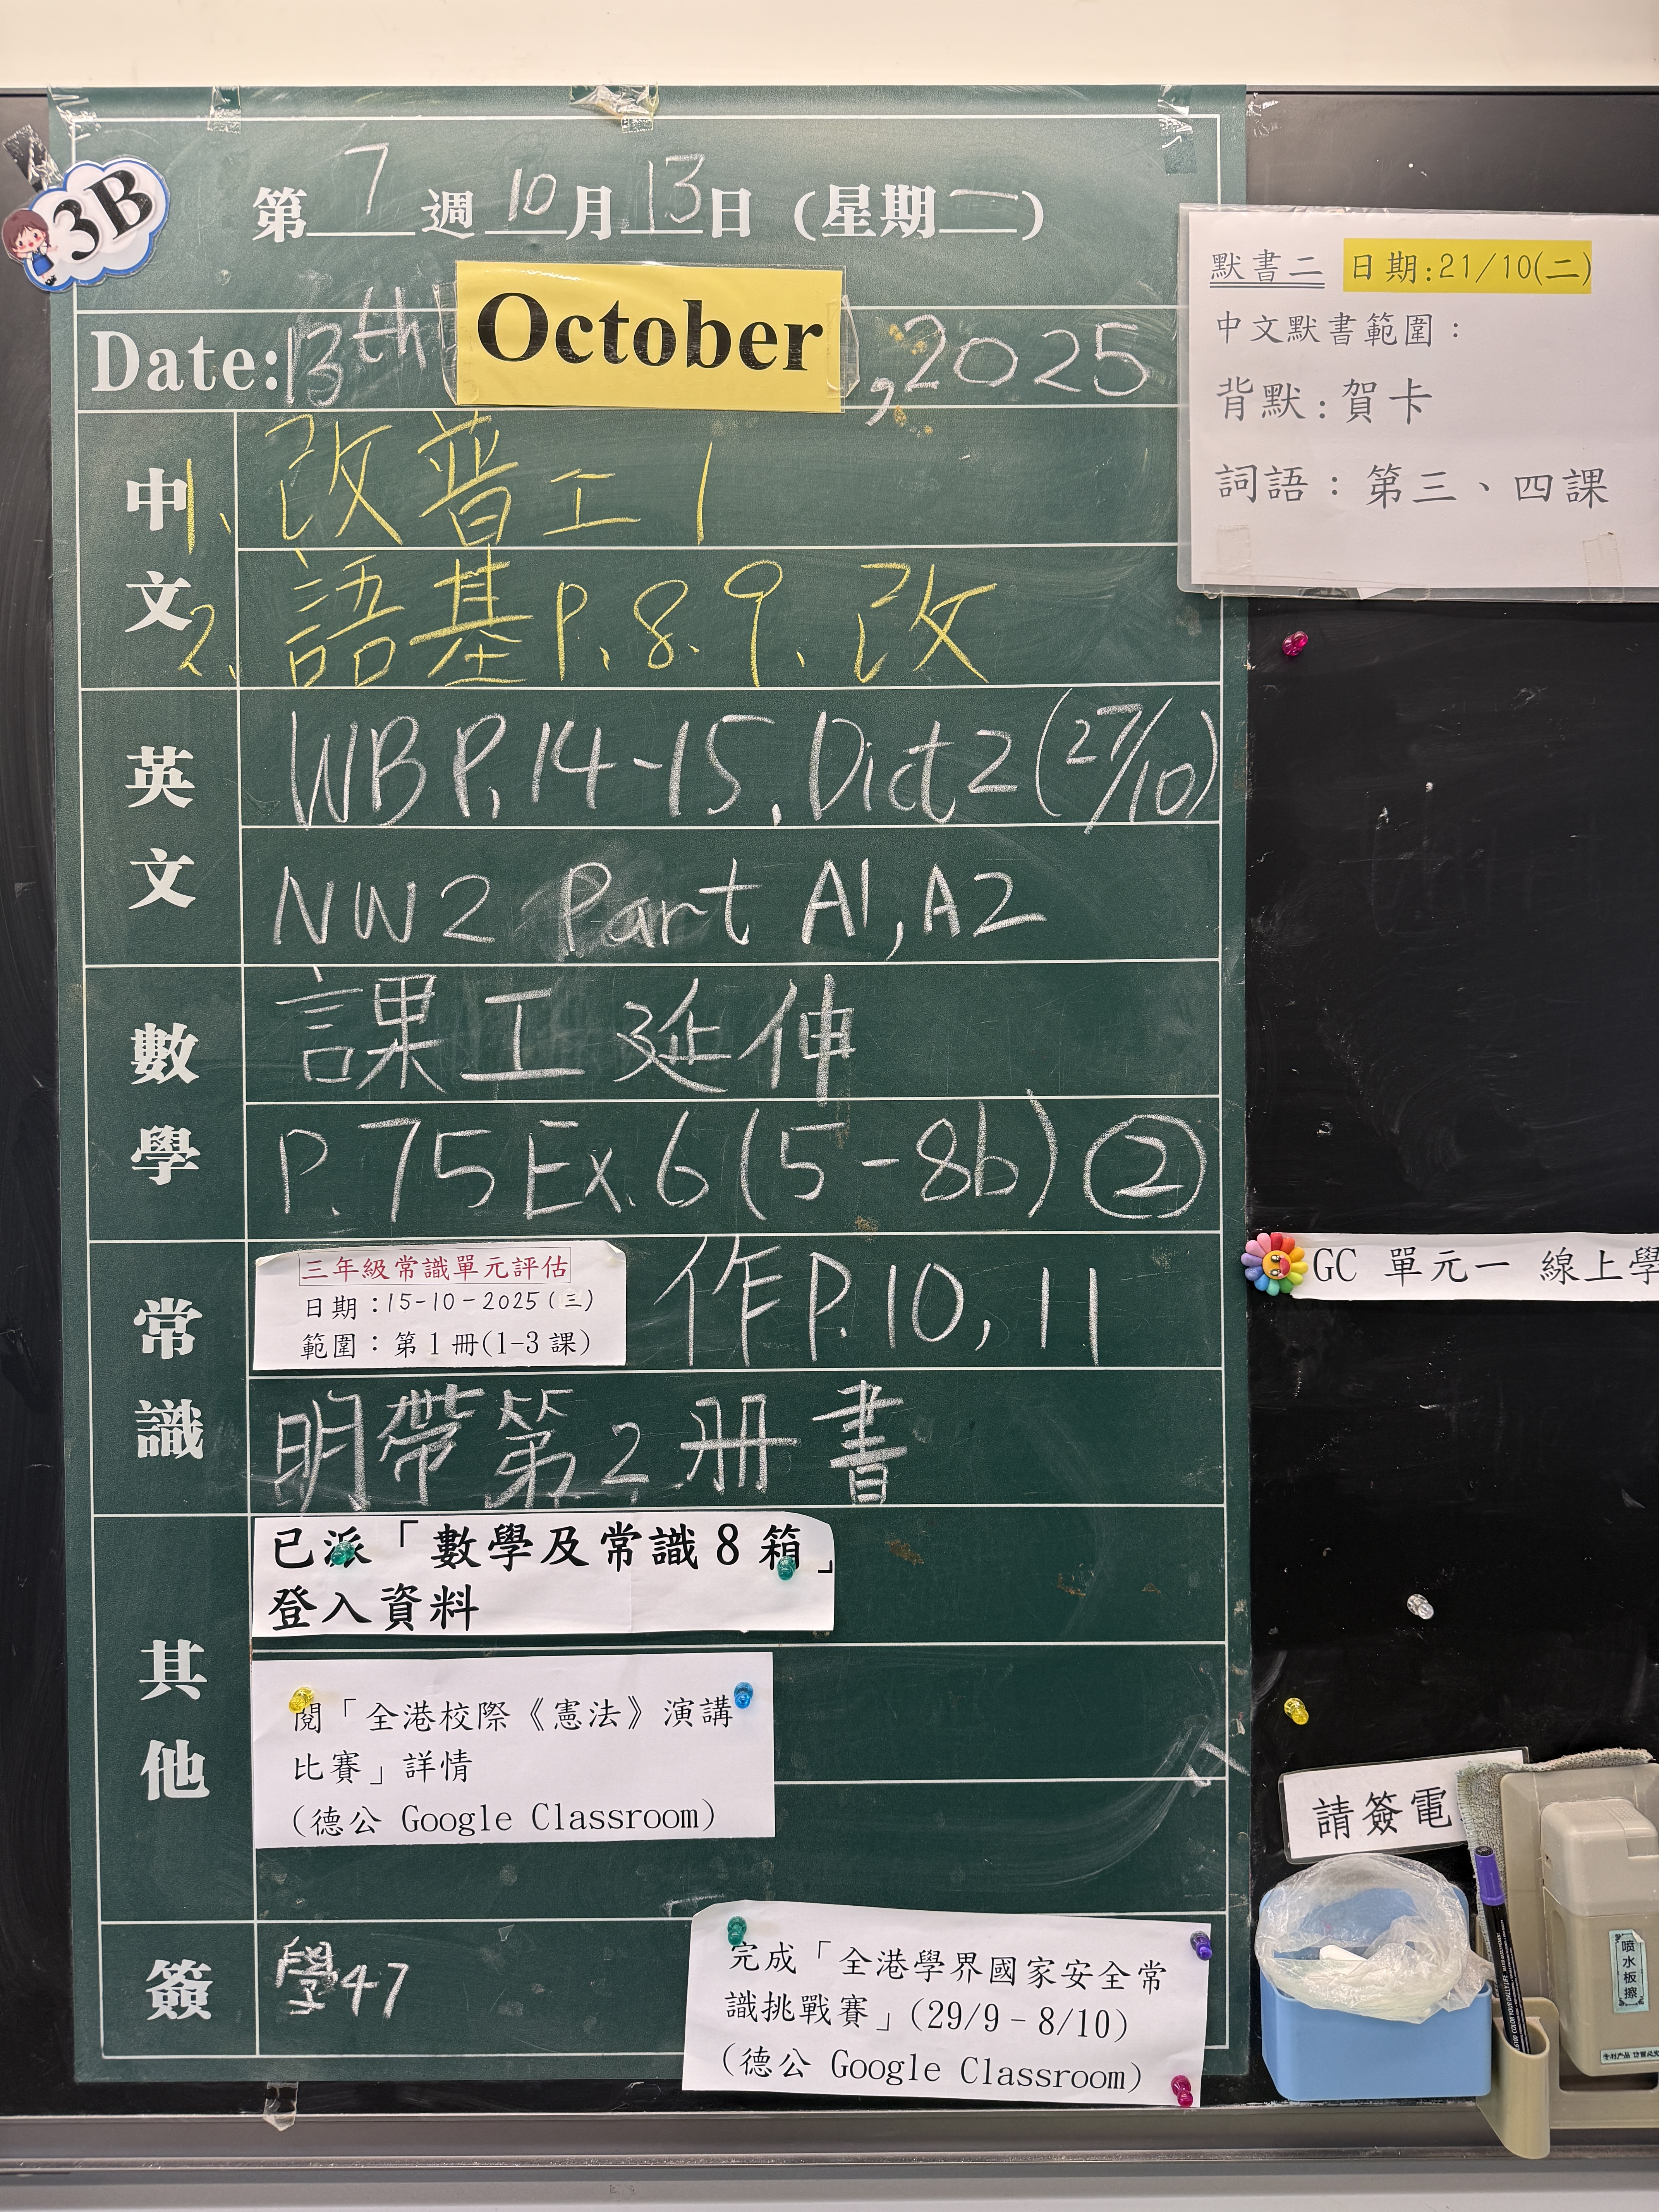 3B
第 7 週 10 月 13 日 (星期一)
Date: 13th October, 2025
中文
1、改普工1
2、語基P.8.9、改
英文
WB P.14-15, Dict 2 (27/10)
NW2 Part A1, A2
數學
課工延伸
P.75 Ex.6 (5-8b) ②
常識
三年級常識單元評估
日期：15-10-2025(三)
範圍：第1冊(1-3課)
作P.10, 11
明帶第2冊書
其他
已派「數學及常識8箱」
登入資料
閱「全港校際《憲法》演講
比賽」詳情
(德公 Google Classroom)
簽
學47
完成「全港學界國家安全常
識挑戰賽」(29/9-8/10)
(德公 Google Classroom)
默書二 日期:21/10(二)
中文默書範圍：
背默:賀卡
詞語：第三、四課
GC 單元一 線上學
請簽電
喷水板擦